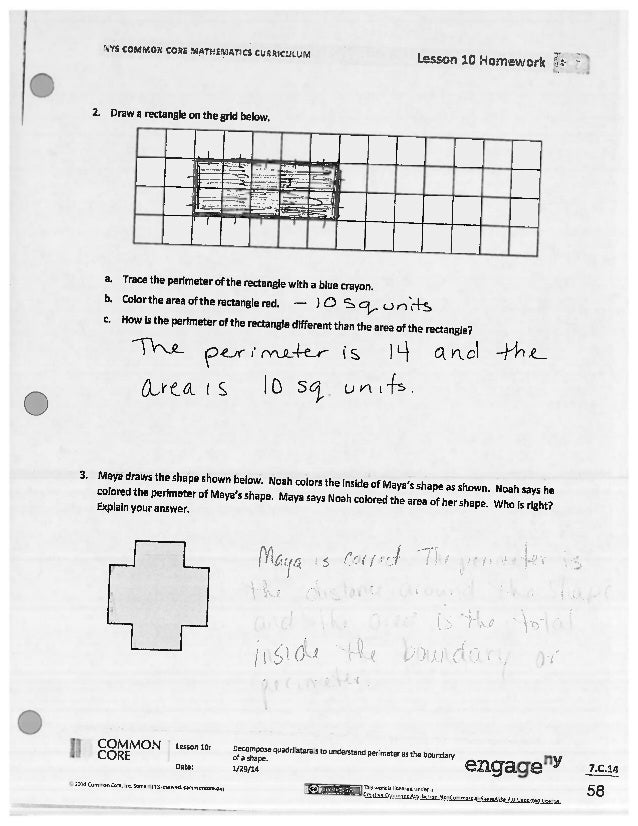 NYS COMMON CORE MATHEMATICS CURRICULUM
Lesson 10 Homework
2. Draw a rectangle on the grid below.
a. Trace the perimeter of the rectangle with a blue crayon.
b. Color the area of the rectangle red. – 10 sq. units
c. How is the perimeter of the rectangle different than the area of the rectangle?
The perimeter is 14 and the
area is 10 sq. units.
3. Maya draws the shape shown below. Noah colors the inside of Maya's shape as shown. Noah says he
colored the perimeter of Maya's shape. Maya says Noah colored the area of her shape. Who is right?
Explain your answer.
Maya is correct The perimeter is
the distance around the shape
and the area is the total
inside the boundary or
perimeter.
COMMON
CORE
Lesson 10:
Date:
Decompose quadrilaterals to understand perimeter as the boundary
of a shape.
1/29/14
engage ny
7.C.14
58
© 2014 Common Core, Inc.
This work is licensed under a